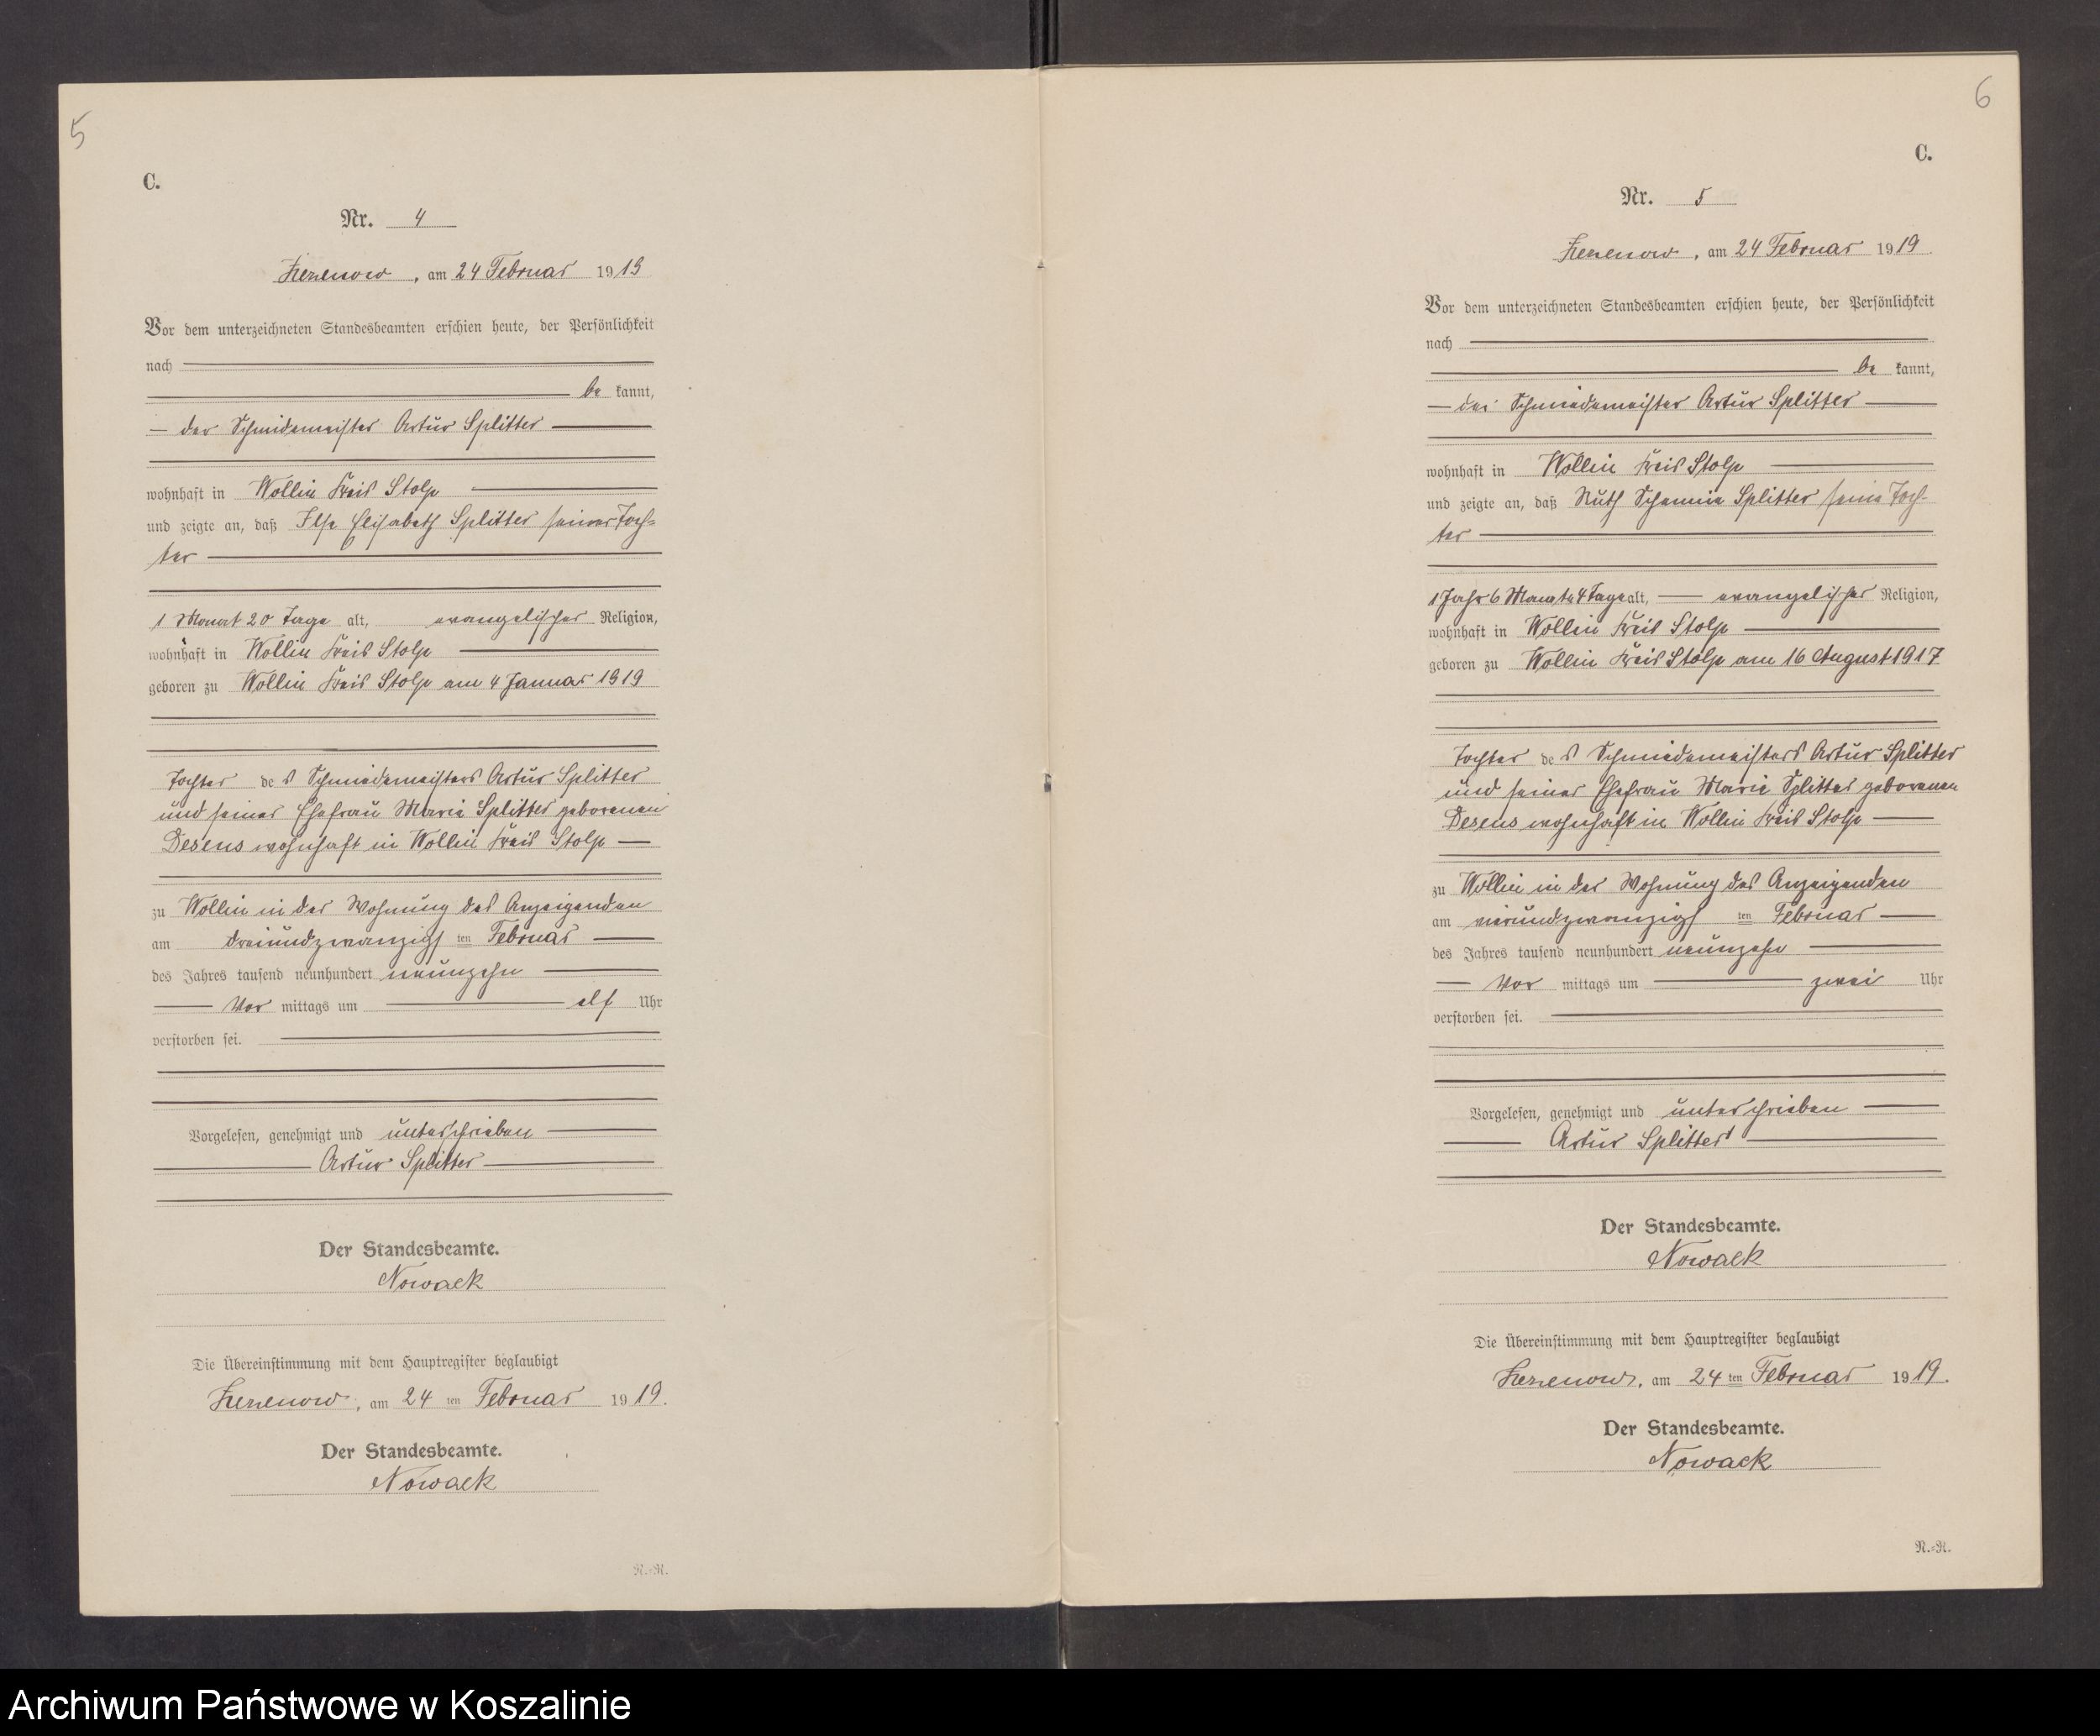 5
C.
Nr. 4
Zezenow, am 24 Februar 1919
Vor dem unterzeichneten Standesbeamten erschien heute, der Persönlichkeit
nach
be kannt,
der Schmidemeister Artur Splitter
wohnhaft in Wollin Kreis Stolp
und zeigte an, daß Ilse Elisabeth Splitter seiner Toch=
ter
1 Monat 20 Tage alt, evangelischer Religion,
wohnhaft in Wollin Kreis Stolp
geboren zu Wollin Kreis Stolp am 4 Januar 1919
Tochter des Schmiedemeisters Artur Splitter
und seiner Ehefrau Marie Splitter geborenen
Desens wohnhaft in Wollin Kreis Stolp
zu Wollin in der Wohnung des Anzeigenden
am dreiundzwanzigsten Februar
des Jahres tausend neunhundert neunzehn
Vor mittags um elf Uhr
verstorben sei.
Vorgelesen, genehmigt und unterschrieben
Artur Splitter
Der Standesbeamte.
Nowack
Die Übereinstimmung mit dem Hauptregister beglaubigt
Zezenow, am 24 ten Februar 1919.
Der Standesbeamte.
Nowack
R.=R.
6
C.
Nr. 5
Zezenow, am 24 Februar 1919
Vor dem unterzeichneten Standesbeamten erschien heute, der Persönlichkeit
nach
be kannt,
der Schmiedemeister Artur Splitter
wohnhaft in Wollin Kreis Stolp
und zeigte an, daß Ruth Splitter seine Toch-
ter
1 Jahr 6 Monate 4 Tage alt, evangelischer Religion,
wohnhaft in Wollin Kreis Stolp
geboren zu Wollin Kreis Stolp am 16 August 1917
Tochter des Schmiedemeisters Artur Splitter
und seiner Ehefrau Marie Splitter geborenen
Desens wohnhaft in Wollin Kreis Stolp
zu Wollin in der Wohnung des Anzeigenden
am vierundzwanzigsten Februar
des Jahres tausend neunhundert neunzehn
Vor mittags um zwei Uhr
verstorben sei.
Vorgelesen, genehmigt und unterschrieben
Artur Splitter
Der Standesbeamte.
Nowack
Die Übereinstimmung mit dem Hauptregister beglaubigt
Zezenow, am 24 ten Februar 1919.
Der Standesbeamte.
Nowack
R.=R.
Archiwum Państwowe w Koszalinie